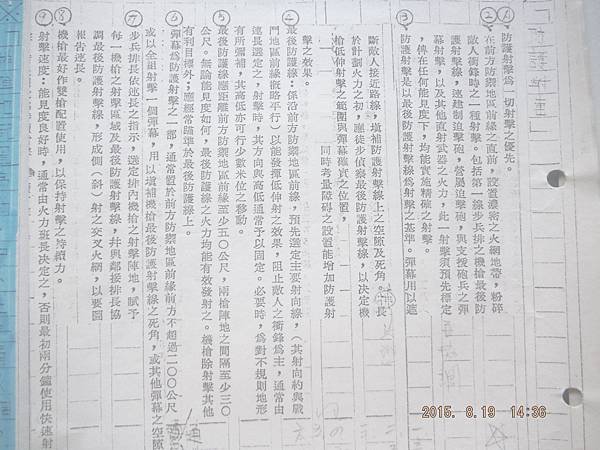 ①防護射擊為一切射擊之優先。
②在前方防禦地區前緣之直前，設置濃密之火網地帶，粉碎
敵人衝鋒時之一種射擊。包括第一線步兵排之機槍最後防
護射擊線，連建制迫擊砲，營屬迫擊砲，與支援砲兵之彈
幕射擊，以及其他直射武器之火力，此一射擊須預先標定
，俾在任何能見度下，均能實施精確之射擊。
③防護射擊是以最後防護射擊線為射擊之基準。彈幕用以遮
斷敵人接近路線，填補防護射擊線上之空隙及死角。長
於計劃火力之初，應徒步偵察最後防護射擊線，以決定機
槍低伸射擊之範圍與彈幕確實之位置，
同時考量障碍之設置能增加防護射
擊之效果。
④最後防護線：係沿前方防禦地區前緣，預先選定主要射向線，（其射向約與戰
鬥地區前緣概略平行）以能發揮低伸射之效果，阻止敵人之衝鋒為主，通常由
連長選定之，射擊時，其方向與高低通常予以固定。必要時，為對不規則地形
有所彌補，其高低亦可行少數米位之移動。
⑤最後防護線應距離前方防禦地區前緣至少五〇公尺，兩槍陣地之間隔至少三〇
公尺。無論能見度如何，最後防護線之火力均能有效發射之。機槍除射擊其他
有利目標外；應經常瞄準於最後防護線上。
⑥彈幕為防護射擊之一部，通常置於前方防禦地區前緣前方不超過二〇〇公尺
或以全組射擊一個彈幕，用以填補機槍最後防護射擊線之死角，或其他彈幕之空隙
⑦步兵排長依連長之指示，選定排內機槍之射擊陣地，賦予
每一機槍之射擊區域及最後防護射擊線，并與鄰接排長協
調最後防護射擊線，形成側（斜）射之交叉火網，以要圖
報告連長。
⑧機槍最好作雙槍配置使用，以保持射擊之持續力。
⑨射擊速度：能見度良好時，通常由火力班長決定之，否則最初兩分鐘使用快速射
2015. 8.19 14:36